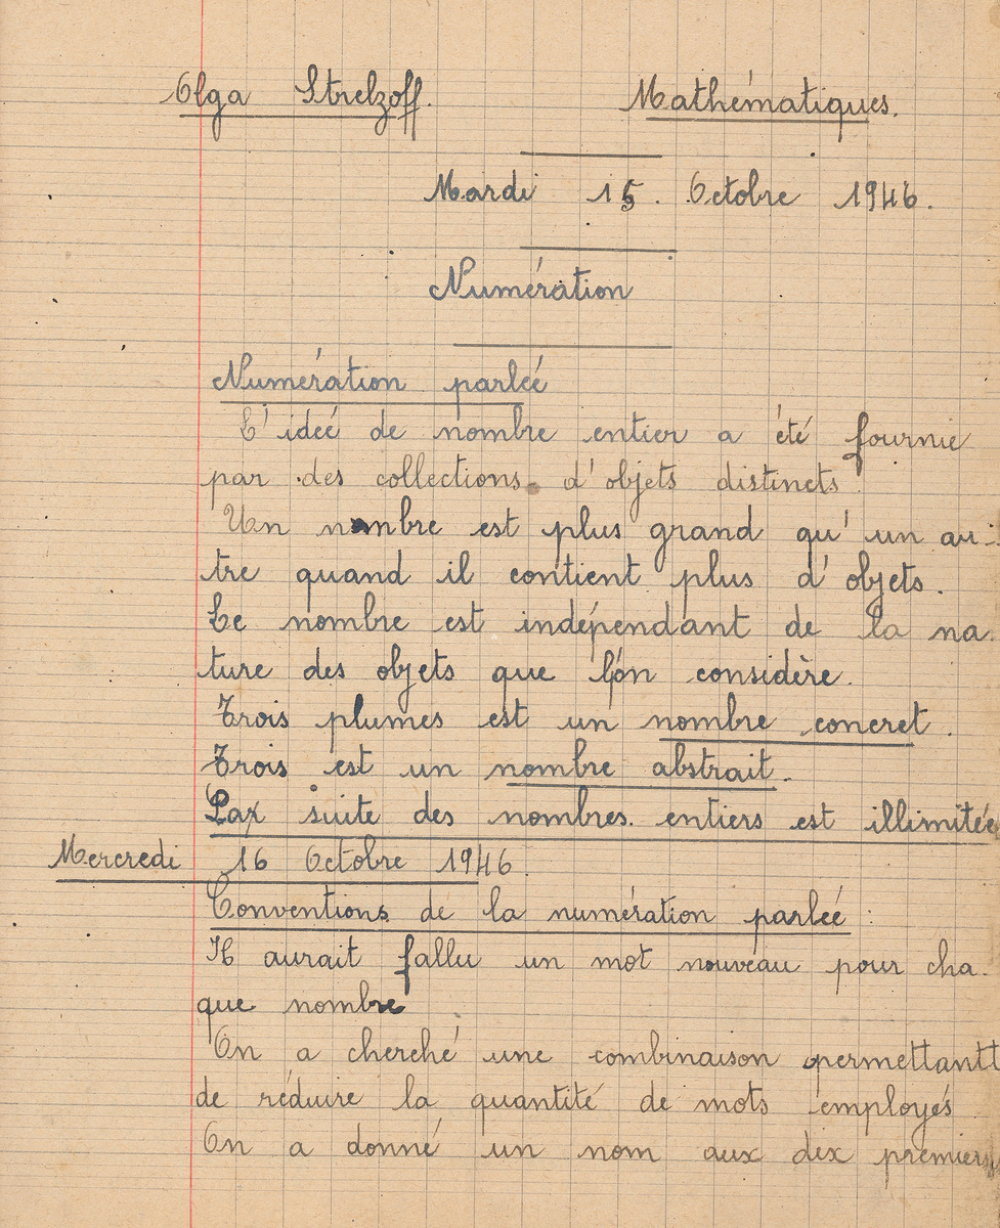 Olga Strelzoff. Mathématiques.
Mardi 15. Octobre 1946.
Numération
Numération parleé
L'ideé de nombre entier a été fournie
par des collections d'objets distincts
Un nombre est plus grand qu'un au-
tre quand il contient plus d'objets.
Le nombre est indépendant de la na-
ture des objets que l'on considère.
Trois plumes est un nombre concret.
Trois est un nombre abstrait.
La suite des nombres. entiers est illimitée
Mercredi 16 Octobre 1946.
Conventions de la numération parleé :
Il aurait fallu un mot nouveau pour cha-
que nombre.
On a cherché une combinaison permettantt
de réduire la quantité de mots employés
On a donné un nom aux dix premiers